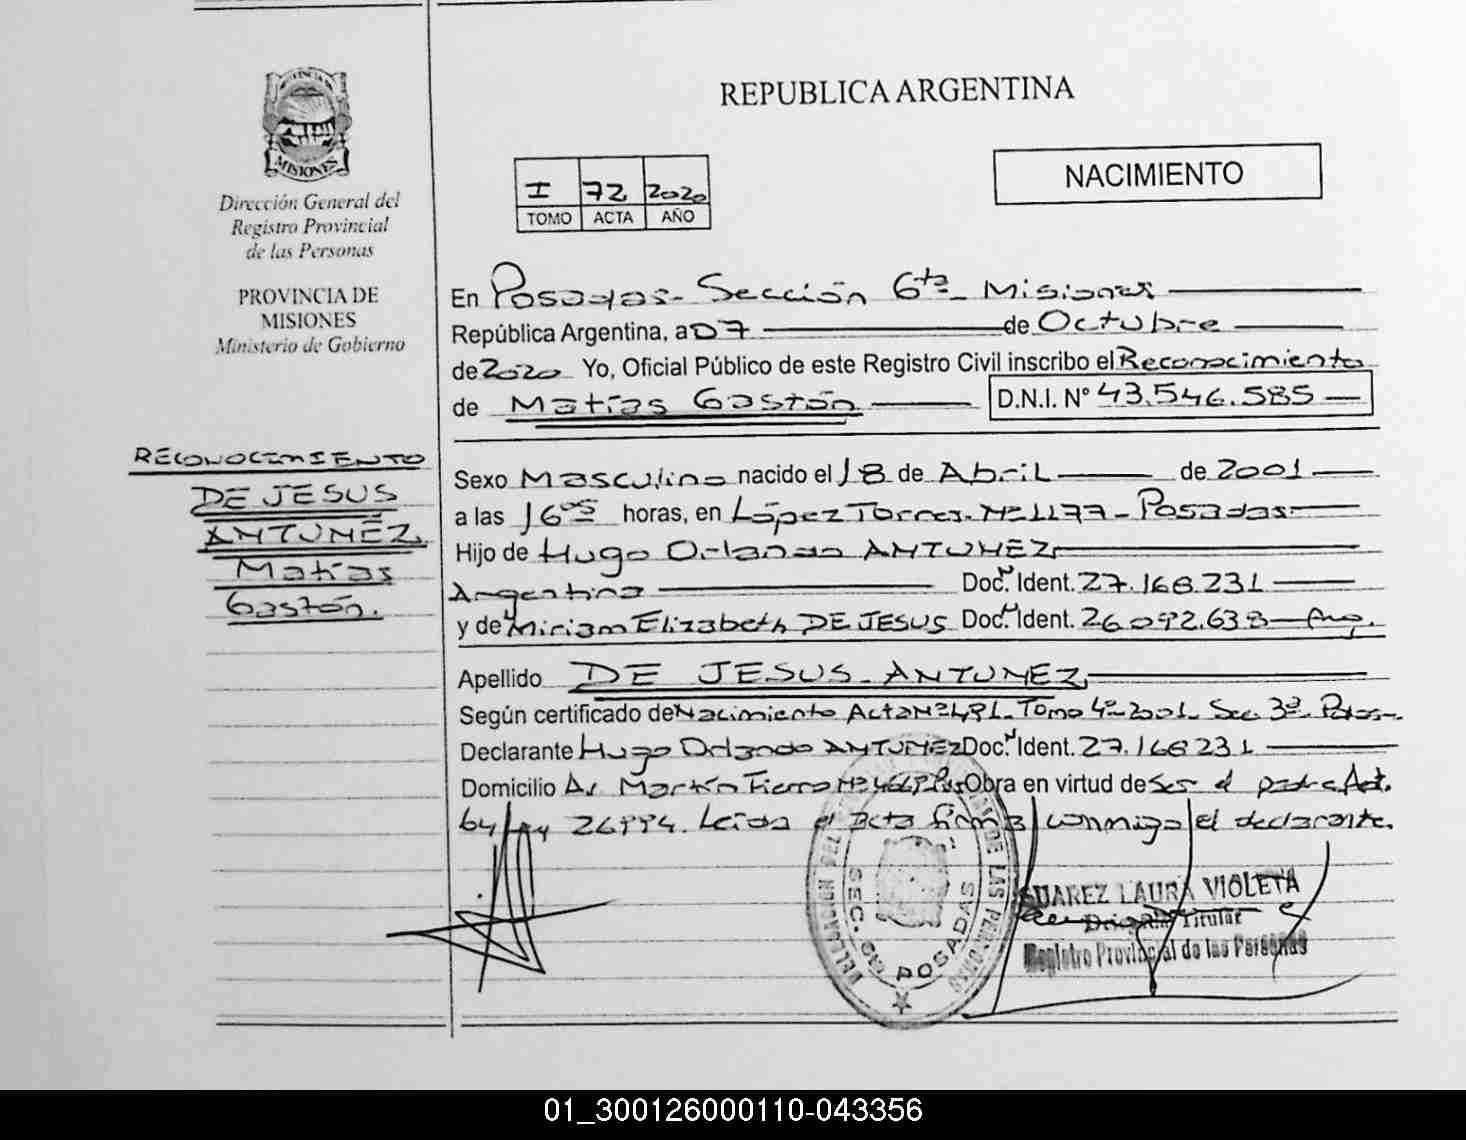 REPUBLICA ARGENTINA
MISIONES
Dirección General del
Registro Provincial
de las Personas
PROVINCIA DE
MISIONES
Ministerio de Gobierno
I 72 2020
TOMO ACTA AÑO
NACIMIENTO
En Posadas - Sección 6ta - Misiones
República Argentina, a 07 de Octubre
de 2020 Yo, Oficial Público de este Registro Civil inscribo el Reconocimiento
de Matías Gastón D.N.I. N° 43.546.585
RECONOCIMIENTO
DE JESUS
ANTUNEZ,
Matías
Gastón.
Sexo Masculino nacido el 18 de Abril de 2001
a las 16 horas, en López Torres - Nº 1177 - Posadas
Hijo de Hugo Orlando ANTUNEZ,
Argentino Doc. Ident. 27.168.231
y de Miriam Elizabeth DE JESUS Doc. Ident. 26.092.638 - Arg.
Apellido DE JESUS - ANTUNEZ,
Según certificado de Nacimiento Acta Nº 491 - Tomo 4º - 2001 - Sec. 3ª -
Declarante Hugo Orlando ANTUNEZ Doc. Ident. 27.168231
Domicilio Av Martín Fierro Nº Obra en virtud de ser el padre Art.
64 ley 26994. Leída el acta firma conmigo el declarante.
DELEGACION DEL DE LAS PERSONAS
SEC. 6TA POSADAS
SUAREZ LAURA VIOLETA
Titular
Registro Provincial de las Personas
01_300126000110-043356